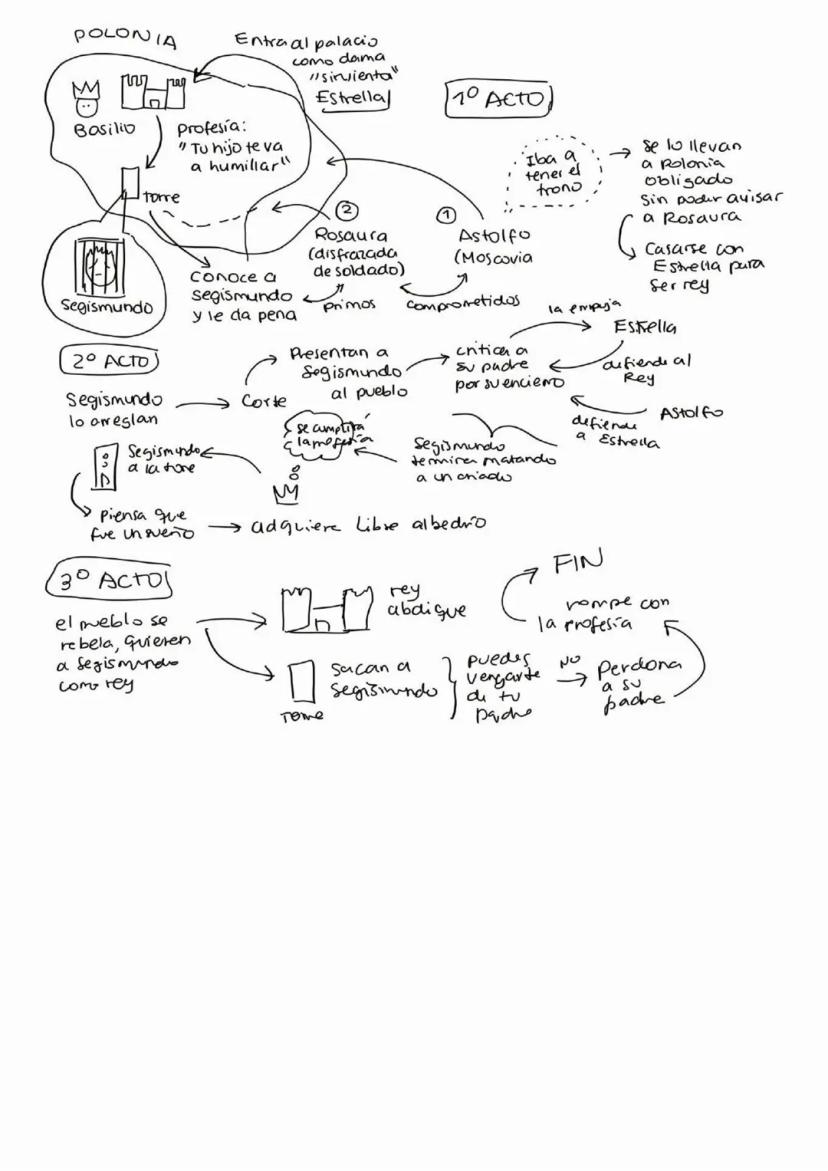 POLONIA
Entra al palacio
como dama
"sirvienta"
Estrella
1º ACTO
Basilio
Profesía:
"Tu hijo te va
a humillar"
torre
Segismundo
Conoce a
Segismundo
y le da pena
②
Rosaura
(disfrazada
de soldado)
primos
①
Astolfo
(Moscovia
comprometidos
Iba a
tener el
trono
se lo llevan
a Polonia
obligado
sin poder avisar
a Rosaura
Casarse con
Estrella para
ser rey
2º ACTO
Segismundo
lo arreglan
Corte
Presentan a
Segismundo
al pueblo
critica a
su padre
por su encierro
la empuja
Estrella
defiende al
Rey
Astolfo
defiende
a Estrella
Segismundo
termina matando
a un criado
se cumplirá
la profesía
Segismundo
a la torre
Piensa que
fue un sueño
adquiere libre albedrío
3º ACTO
el pueblo se
rebela, quieren
a Segismundo
como rey
rey
abdique
Torre
sacan a
Segismundo
puedes
vengarte
de tu
padre
NO
Perdona
a su
padre
rompe con
la profesía
FIN